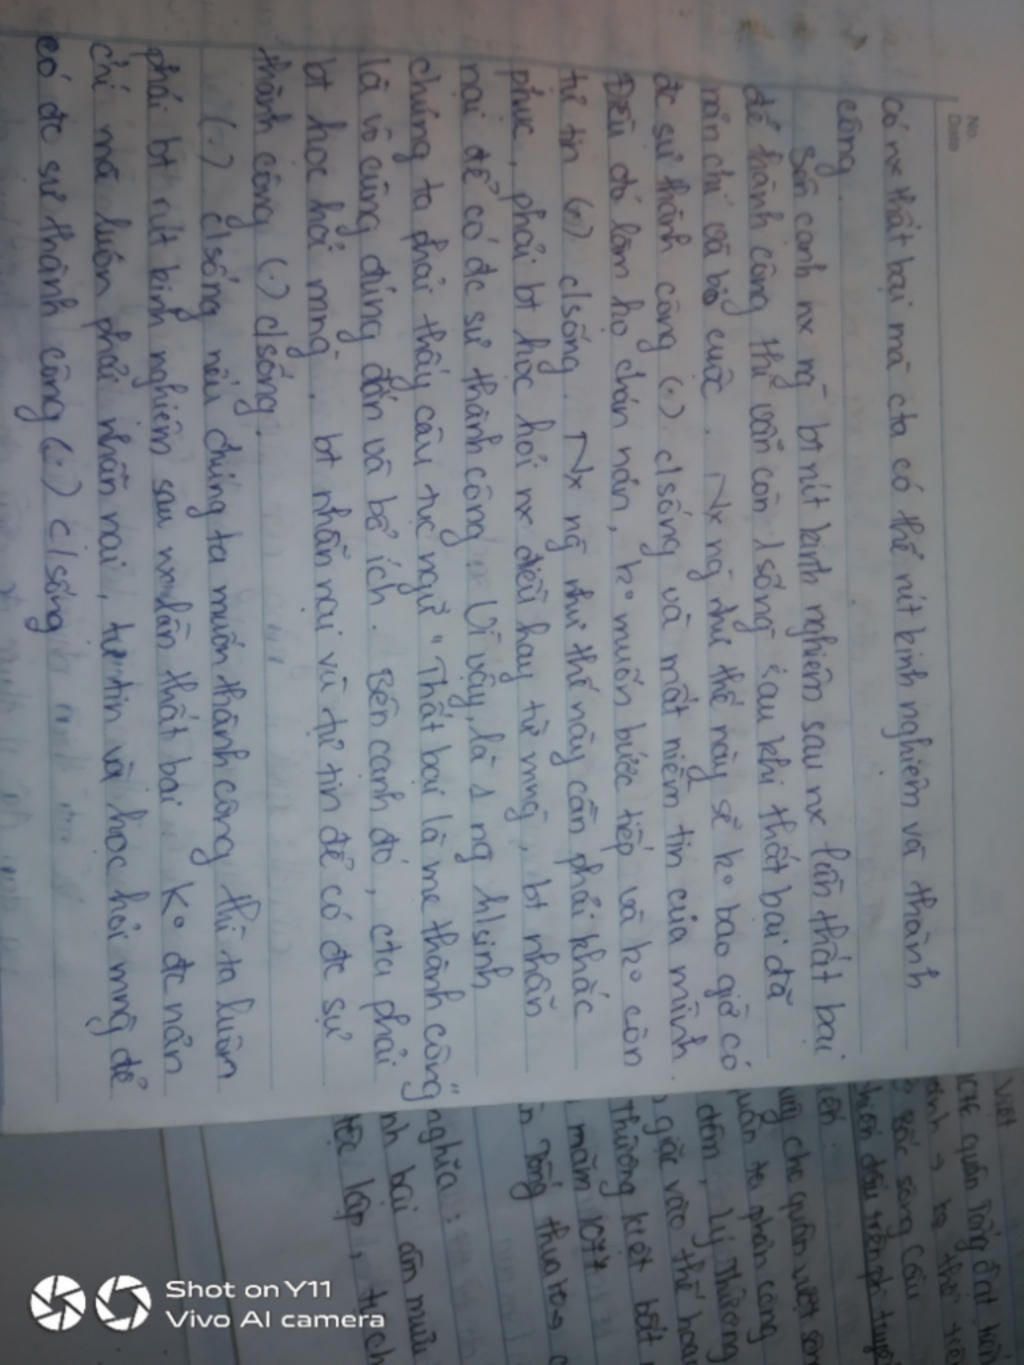 No.
Date
có nx thất bại mà cta có thể rút kinh nghiệm và thành
công.
Bên cạnh nx ng̃ bt rút kinh nghiệm sau nx lần thất bại
để thành công thì vẫn còn 1 sống sau khi thất bại đã
nản chí và bỏ cuộc. Nx ng̃ như thế này sẽ ko bao giờ có
đc sự thành công (.) c/sống và mất niềm tin của mình.
Điều đó làm họ chán nản, ko muốn bước tiếp và ko còn
tự tin (.) c/sống. Nx ng̃ như thế này cần phải khắc
phục, phải bt học hỏi nx điều hay từ mng̃, bt nhẫn
nại để có đc sự thành công. Vì vậy, là 1 ng h/sinh
chúng ta phải thấy câu tục ngữ "Thất bại là mẹ thành công"
là vô cùng đúng đắn và bổ ích. Bên cạnh đó, cta phải
bt học hỏi mng̃, bt nhẫn nại và tự tin để có đc sự
thành công (.) c/sống.
(.) c/sống nếu chúng ta muốn thành công thì ta luôn
phải bt rút kinh nghiệm sau nx lần thất bại. Ko đc nản
chí mà luôn phải nhẫn nại, tự tin và học hỏi mng̃ để
có đc sự thành công (.) c/sống
Việt
quân Tống đ
bắc sông Cầu
chiến đấu trên p tuyến
cho quân
quân ta phản công
đêm, Lý Thường
giặc vào thế hoan
Thường Kiệt
năm 1077
Tống thua
nghĩa:
bại âm mưu
độc lập,
Shot on Y11
Vivo AI camera